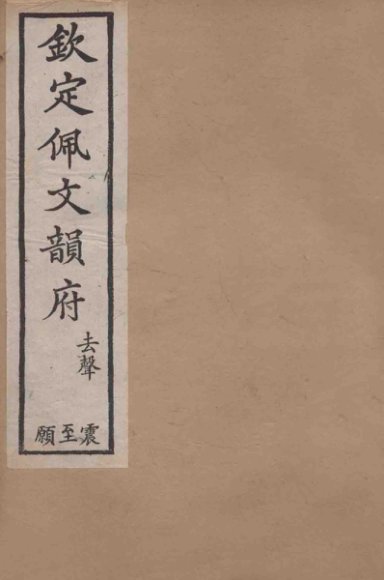 欽定佩文韻府
去聲
震至願